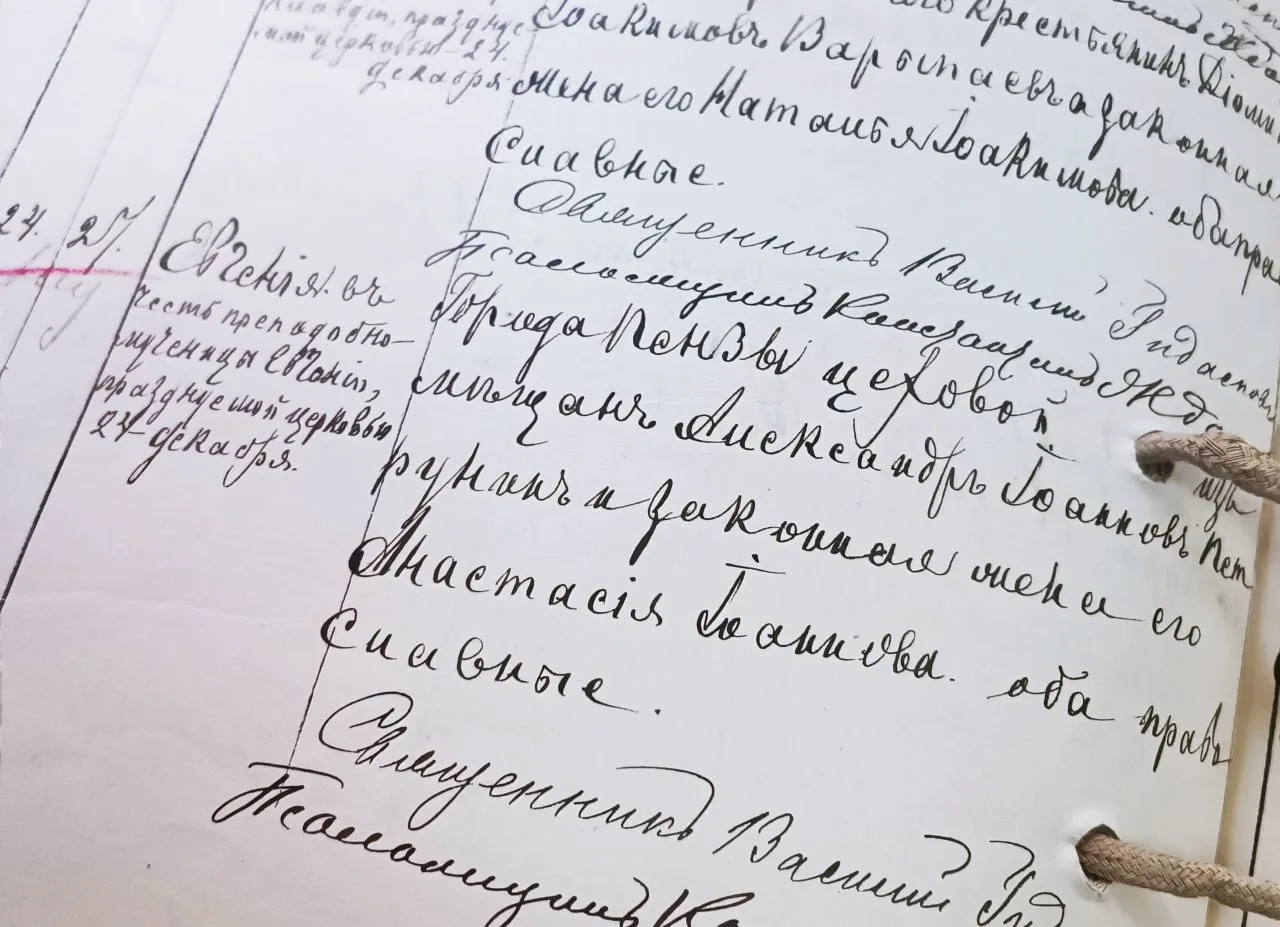 крестьянинъ
празднуе-
мой церковью 24
декабря
Іоакимовъ Варыпаевъ и законная
жена его Наталья Іоакимова. оба право
славные.
Священникъ Василій
Псаломщикъ
24. 25.
Евгенія. въ
честь преподобно-
мученицы Евгеніи,
празднуемой церковью
24 декабря.
Города Пензы цеховой изъ
мѣщанъ Александръ Іоанновъ Пет
рунинъ и законная жена его
Анастасія Іоаннова. оба прав
славные.
Священникъ Василій
Псаломщикъ